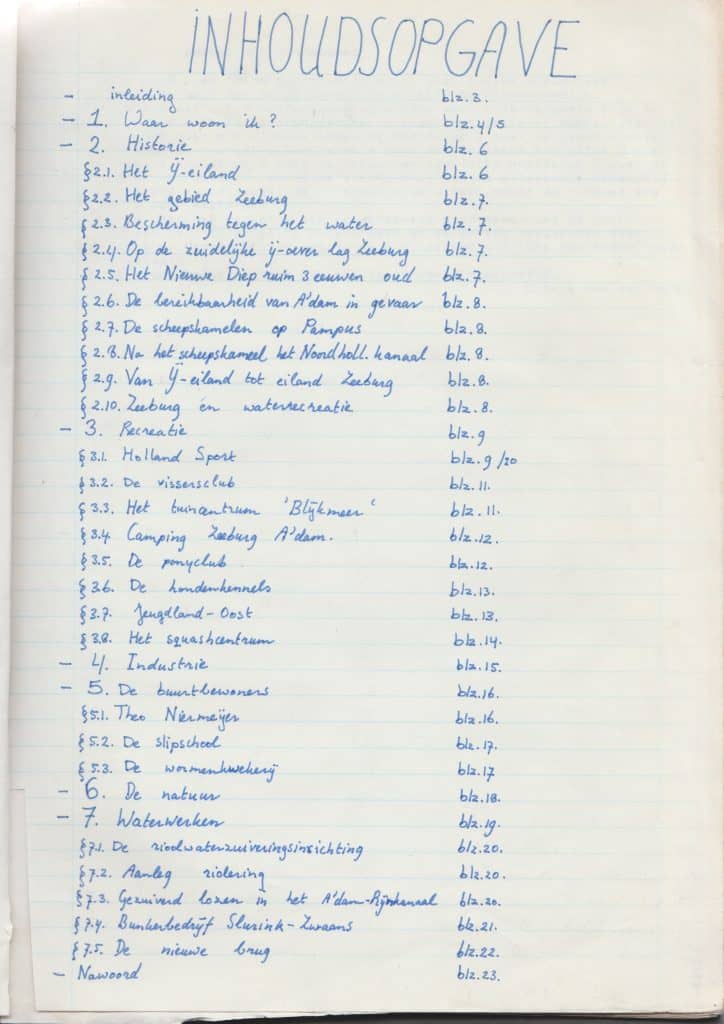 INHOUDSOPGAVE
- inleiding blz. 3.
- 1. Waar woon ik? blz. 4/5
- 2. Historie blz. 6
§ 2.1. Het Ÿ-eiland blz. 6
§ 2.2. Het gebied Zeeburg blz. 7.
§ 2.3. Bescherming tegen het water blz. 7.
§ 2.4. Op de zuidelijke ÿ-oever lag Zeeburg blz. 7.
§ 2.5. Het Nieuwe Diep ruim 3 eeuwen oud blz. 7.
§ 2.6. De bereikbaarheid van A'dam in gevaar blz. 8.
§ 2.7. De scheepskamelen op Pampus blz. 8.
§ 2.8. Na het scheepskameel het Noordholl. kanaal blz. 8.
§ 2.9. Van Ÿ-eiland tot eiland Zeeburg blz. 8.
§ 2.10. Zeeburg én waterrecreatie blz. 8.
- 3. Recreatie blz. 9
§ 3.1. Holland Sport blz. 9/10
§ 3.2. De vissersclub blz. 11.
§ 3.3. Het tuincentrum 'Blijkmeer' blz. 11.
§ 3.4 Camping Zeeburg A'dam. blz. 12.
§ 3.5. De ponyclub blz. 12.
§ 3.6. De hondenkennels blz. 13.
§ 3.7. Jeugdland-Oost blz. 13.
§ 3.8. Het squashcentrum blz. 14.
- 4. Industrie blz. 15.
- 5. De buurtbewoners blz. 16.
§ 5.1. Theo Niermeijer blz. 16.
§ 5.2. De slipschool blz. 17.
§ 5.3. De wormenkwekerij blz. 17
- 6. De natuur blz. 18.
- 7. Waterwerken blz. 19.
§ 7.1. De rioolwaterzuiveringsinrichting blz. 20.
§ 7.2. Aanleg riolering blz. 20.
§ 7.3. Gezuiverd lozen in het A'dam-Rijnkanaal blz. 20.
§ 7.4. Bunkerbedrijf Slurink-Zwaans blz. 21.
§ 7.5. De nieuwe brug blz. 22.
- Nawoord blz. 23.